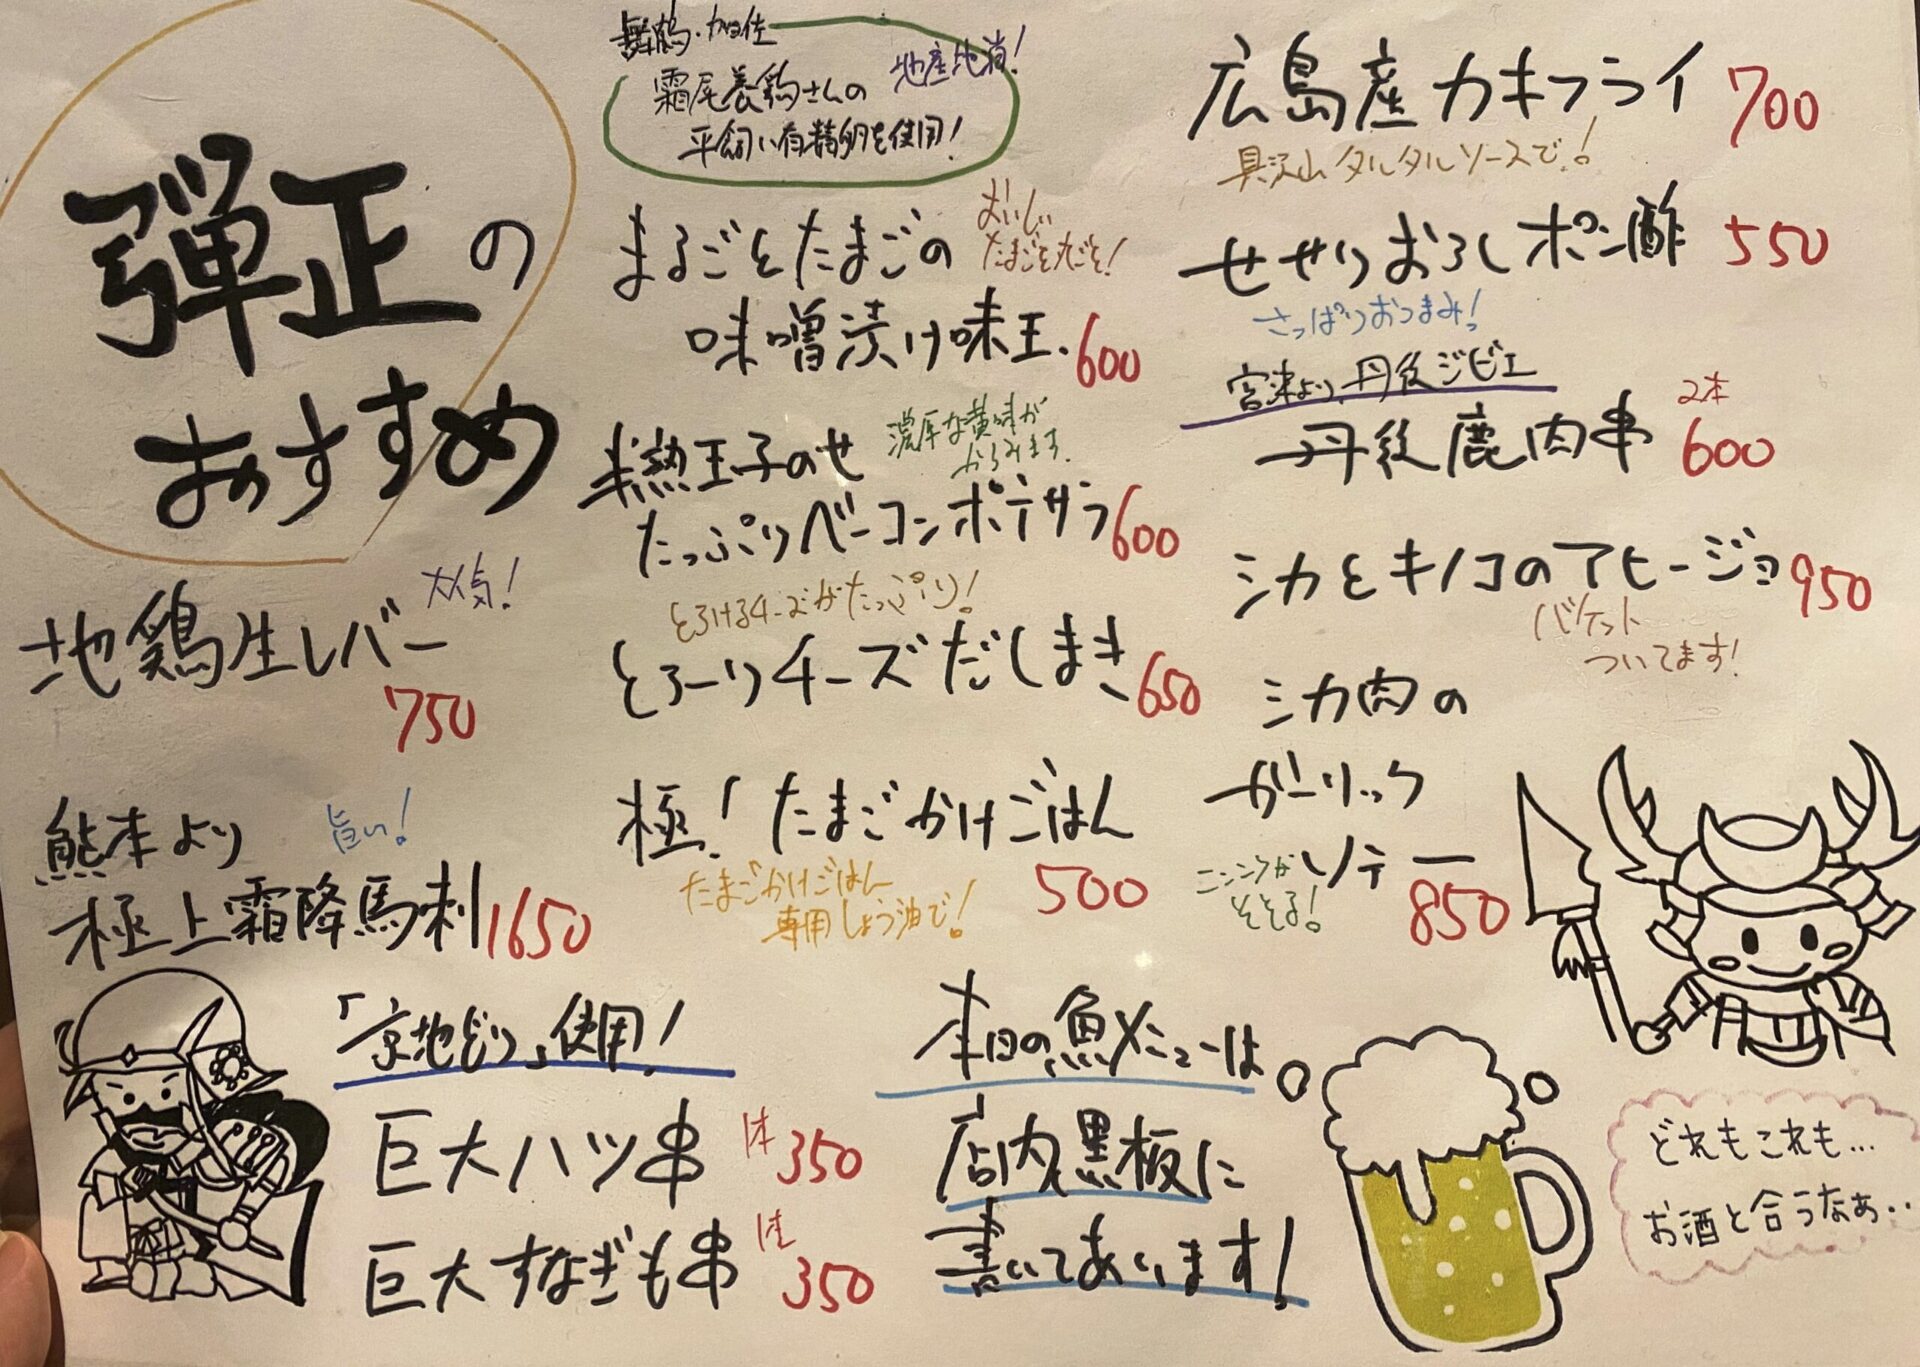 弾正の
おすすめ
地鶏生レバー
大人気!
750
熊本より
旨い!
極上霜降馬刺 1650
「京地どり」使用!
巨大ハツ串 1本 350
巨大すなぎも串 1本 350
舞鶴・加佐
地産地消!
霜尾養鶏さんの
平飼い有精卵を使用!
まるごとたまごの
おいしい
たまごだぞ!
味噌漬け味玉。600
半熟玉子のせ
濃厚な黄味が
からみます。
たっぷりベーコンポテサラ 600
とろけるチーズがたっぷり!
とろーりチーズだしまき 650
極!たまごかけごはん
500
たまごかけごはん
専用しょう油で!
本日の魚メニューは
店内黒板に
書いてあります!
広島産カキフライ 700
具沢山タルタルソースで!
せせりおろしポン酢 550
さっぱりおつまみ!
宮津より、丹後ジビエ
→丹後鹿肉串
2本
600
シカとキノコのアヒージョ 950
バケット
ついてます!
シカ肉の
ガーリック
ソテー
850
ニンニクが
そそる!
どれもこれも...
お酒と合うなぁ..